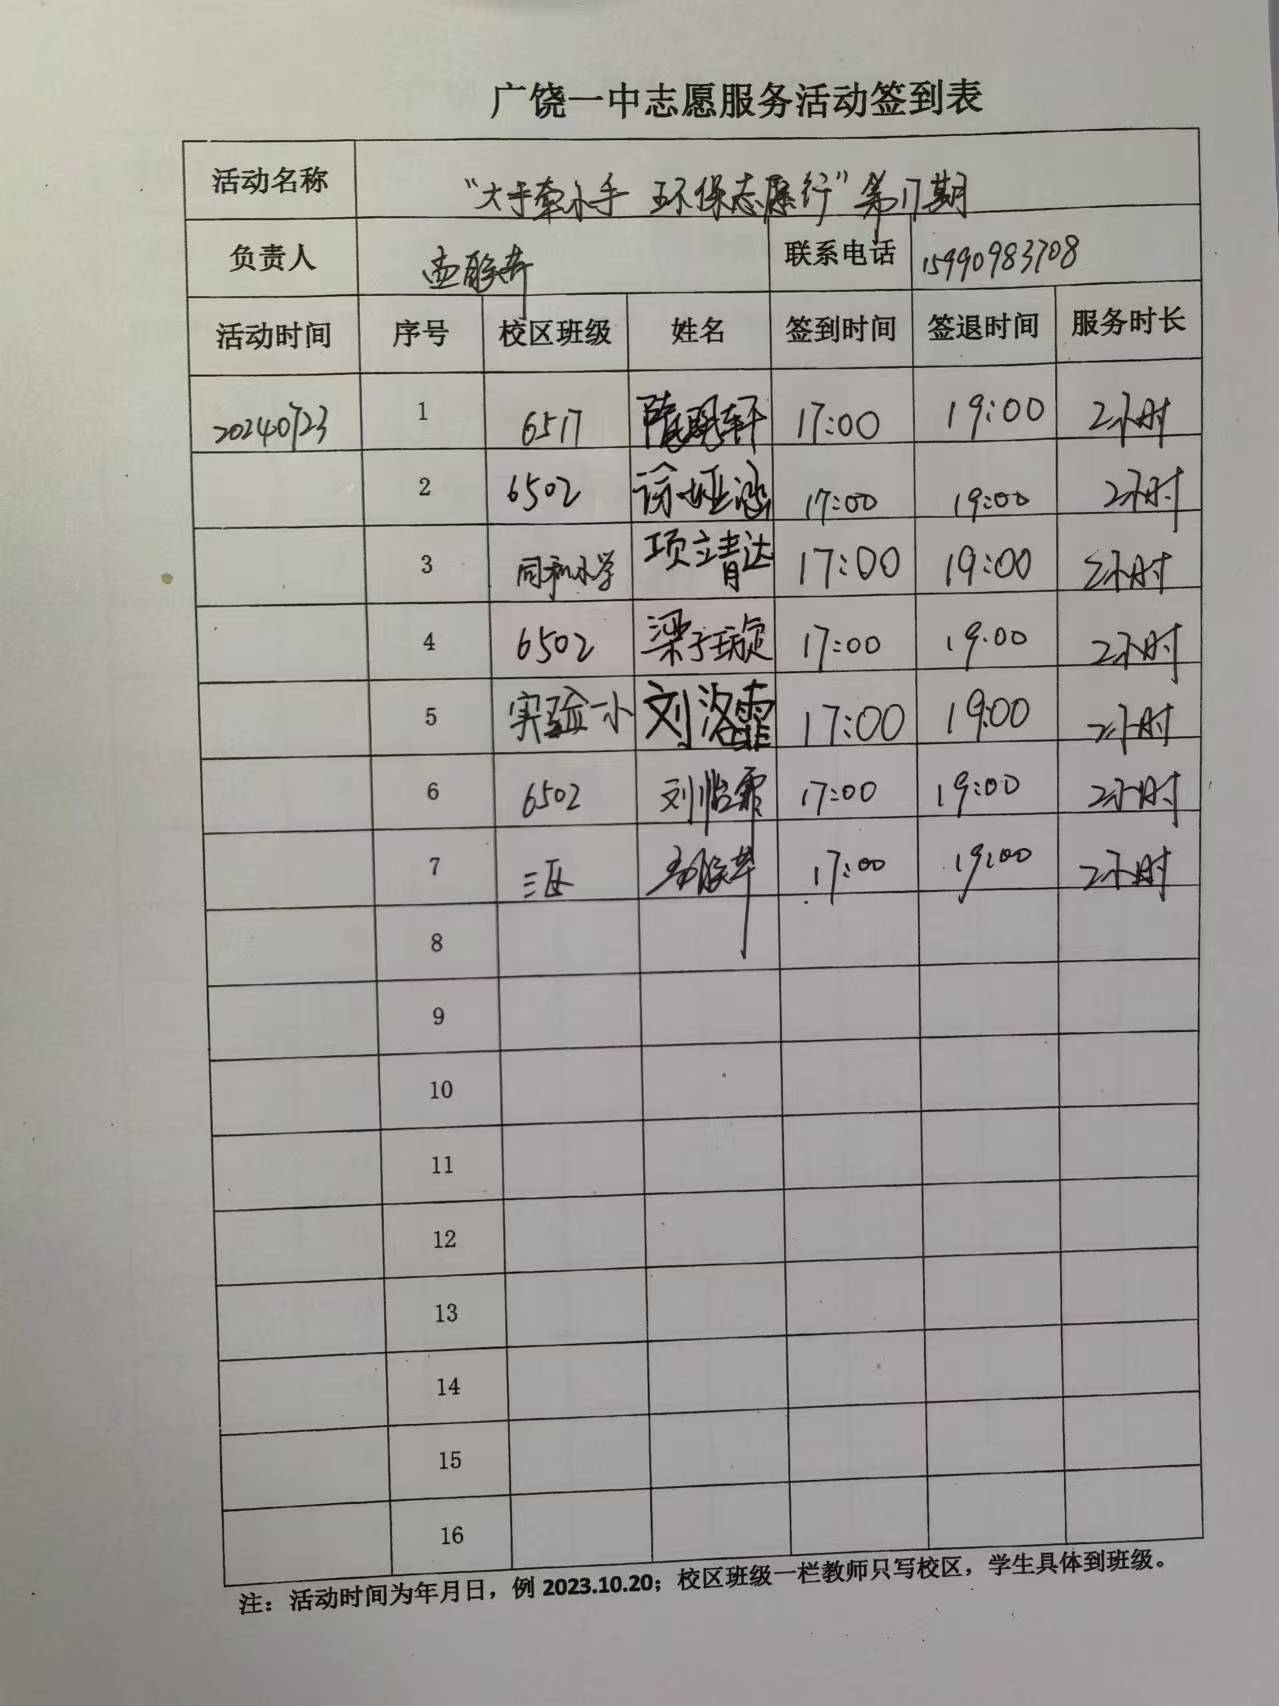 广饶一中志愿服务活动签到表
活动名称 “大手牵小手 环保志愿行”第17期
负责人 联系电话 15990983708
活动时间 序号 校区班级 姓名 签到时间 签退时间 服务时长
20240723 1 6517 17:00 19:00 2小时
2 6502 17:00 19:00 2小时
3 同和小学 项靖达 17:00 19:00 2小时
4 6502 梁于璇 17:00 19:00 2小时
5 实验一小 刘洛霏 17:00 19:00 2小时
6 6502 刘怡霏 17:00 19:00 2小时
7 17:00 19:00 2小时
8
9
10
11
12
13
14
15
16
注：活动时间为年月日，例 2023.10.20；校区班级一栏教师只写校区，学生具体到班级。